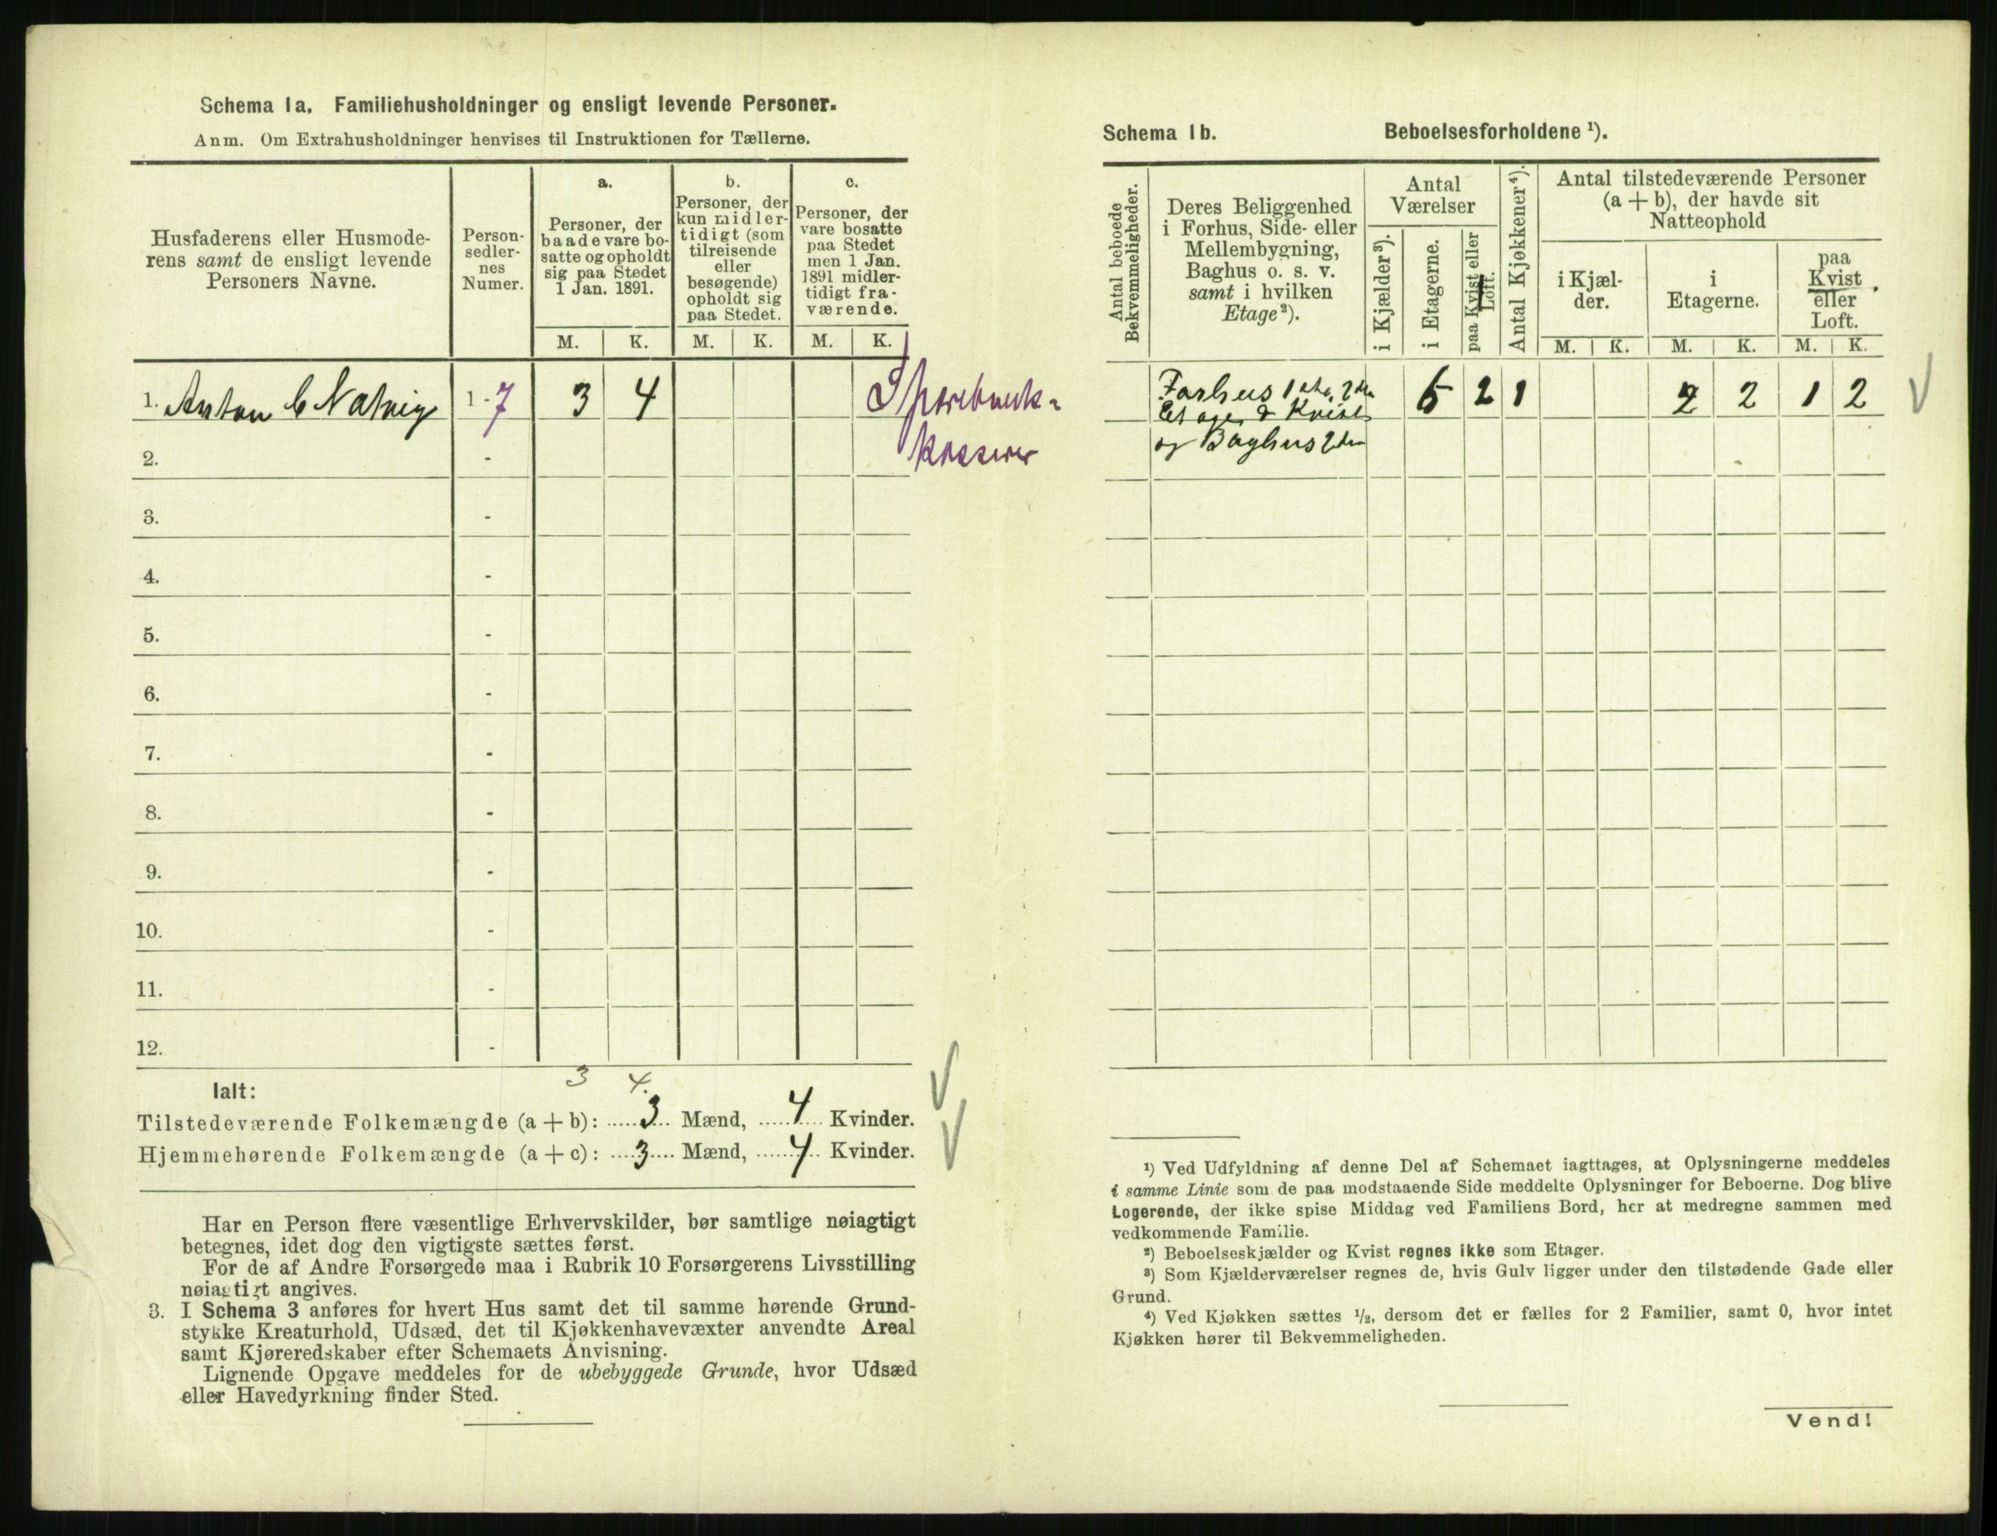 Schema 1a. Familiehusholdninger og ensligt levende Personer.
Anm. Om Extrahusholdninger henvises til Instruktionen for Tællerne.
Husfaderens eller Husmode-
rens samt de ensligt levende
Personers Navne.
Person-
sedler-
nes
Numer.
a.
Personer, der
baade vare bo-
satte og opholdt
sig paa Stedet
1 Jan. 1891.
b.
Personer, der
kun midler-
tidigt (som
tilreisende
eller
besøgende)
opholdt sig
paa Stedet.
c.
Personer, der
vare bosatte
paa Stedet
men 1 Jan.
1891 midler-
tidigt fra-
værende.
M. K. M. K. M. K.
1. Anton C Natvig 1 - 7 3 4 Sparebank-
2. - kasserer
3. -
4. -
5. -
6. -
7. -
8. -
9. -
10. -
11. -
12. -
3 4.
Ialt:
Tilstedeværende Folkemængde (a + b): 3 Mænd, 4 Kvinder.
Hjemmehørende Folkemængde (a + c): 3 Mænd, 4 Kvinder.
Har en Person flere væsentlige Erhvervskilder, bør samtlige nøiagtigt
betegnes, idet dog den vigtigste sættes først.
For de af Andre Forsørgede maa i Rubrik 10 Forsørgerens Livsstilling
nøiagtigt angives.
3. I Schema 3 anføres for hvert Hus samt det til samme hørende Grund-
stykke Kreaturhold, Udsæd, det til Kjøkkenhavevæxter anvendte Areal
samt Kjøreredskaber efter Schemaets Anvisning.
Lignende Opgave meddeles for de ubebyggede Grunde, hvor Udsæd
eller Havedyrkning finder Sted.
Schema 1b. Beboelsesforholdene ¹).
Antal beboede
Bekvemmeligheder.
Deres Beliggenhed
i Forhus, Side- eller
Mellembygning,
Baghus o. s. v.
samt i hvilken
Etage²).
Antal
Værelser
i Kjælder³).
i Etagerne.
paa Kvist eller
Loft.
Antal Kjøkkener⁴).
Antal tilstedeværende Personer
(a + b), der havde sit
Natteophold
i Kjæl-
der.
i
Etagerne.
paa
Kvist
eller
Loft.
M. K. M. K. M. K.
Forhus 1ste, 2den 5 2 1 2 2 1 2
Etage & Kvist
og Baghus 2den
¹) Ved Udfyldning af denne Del af Schemaet iagttages, at Oplysningerne meddeles
i samme Linie som de paa modstaaende Side meddelte Oplysninger for Beboerne. Dog blive
Logerende, der ikke spise Middag ved Familiens Bord, her at medregne sammen med
vedkommende Familie.
²) Beboelseskjælder og Kvist regnes ikke som Etager.
³) Som Kjælderværelser regnes de, hvis Gulv ligger under den tilstødende Gade eller
Grund.
⁴) Ved Kjøkken sættes ½, dersom det er fælles for 2 Familier, samt 0, hvor intet
Kjøkken hører til Bekvemmeligheden.
Vend!